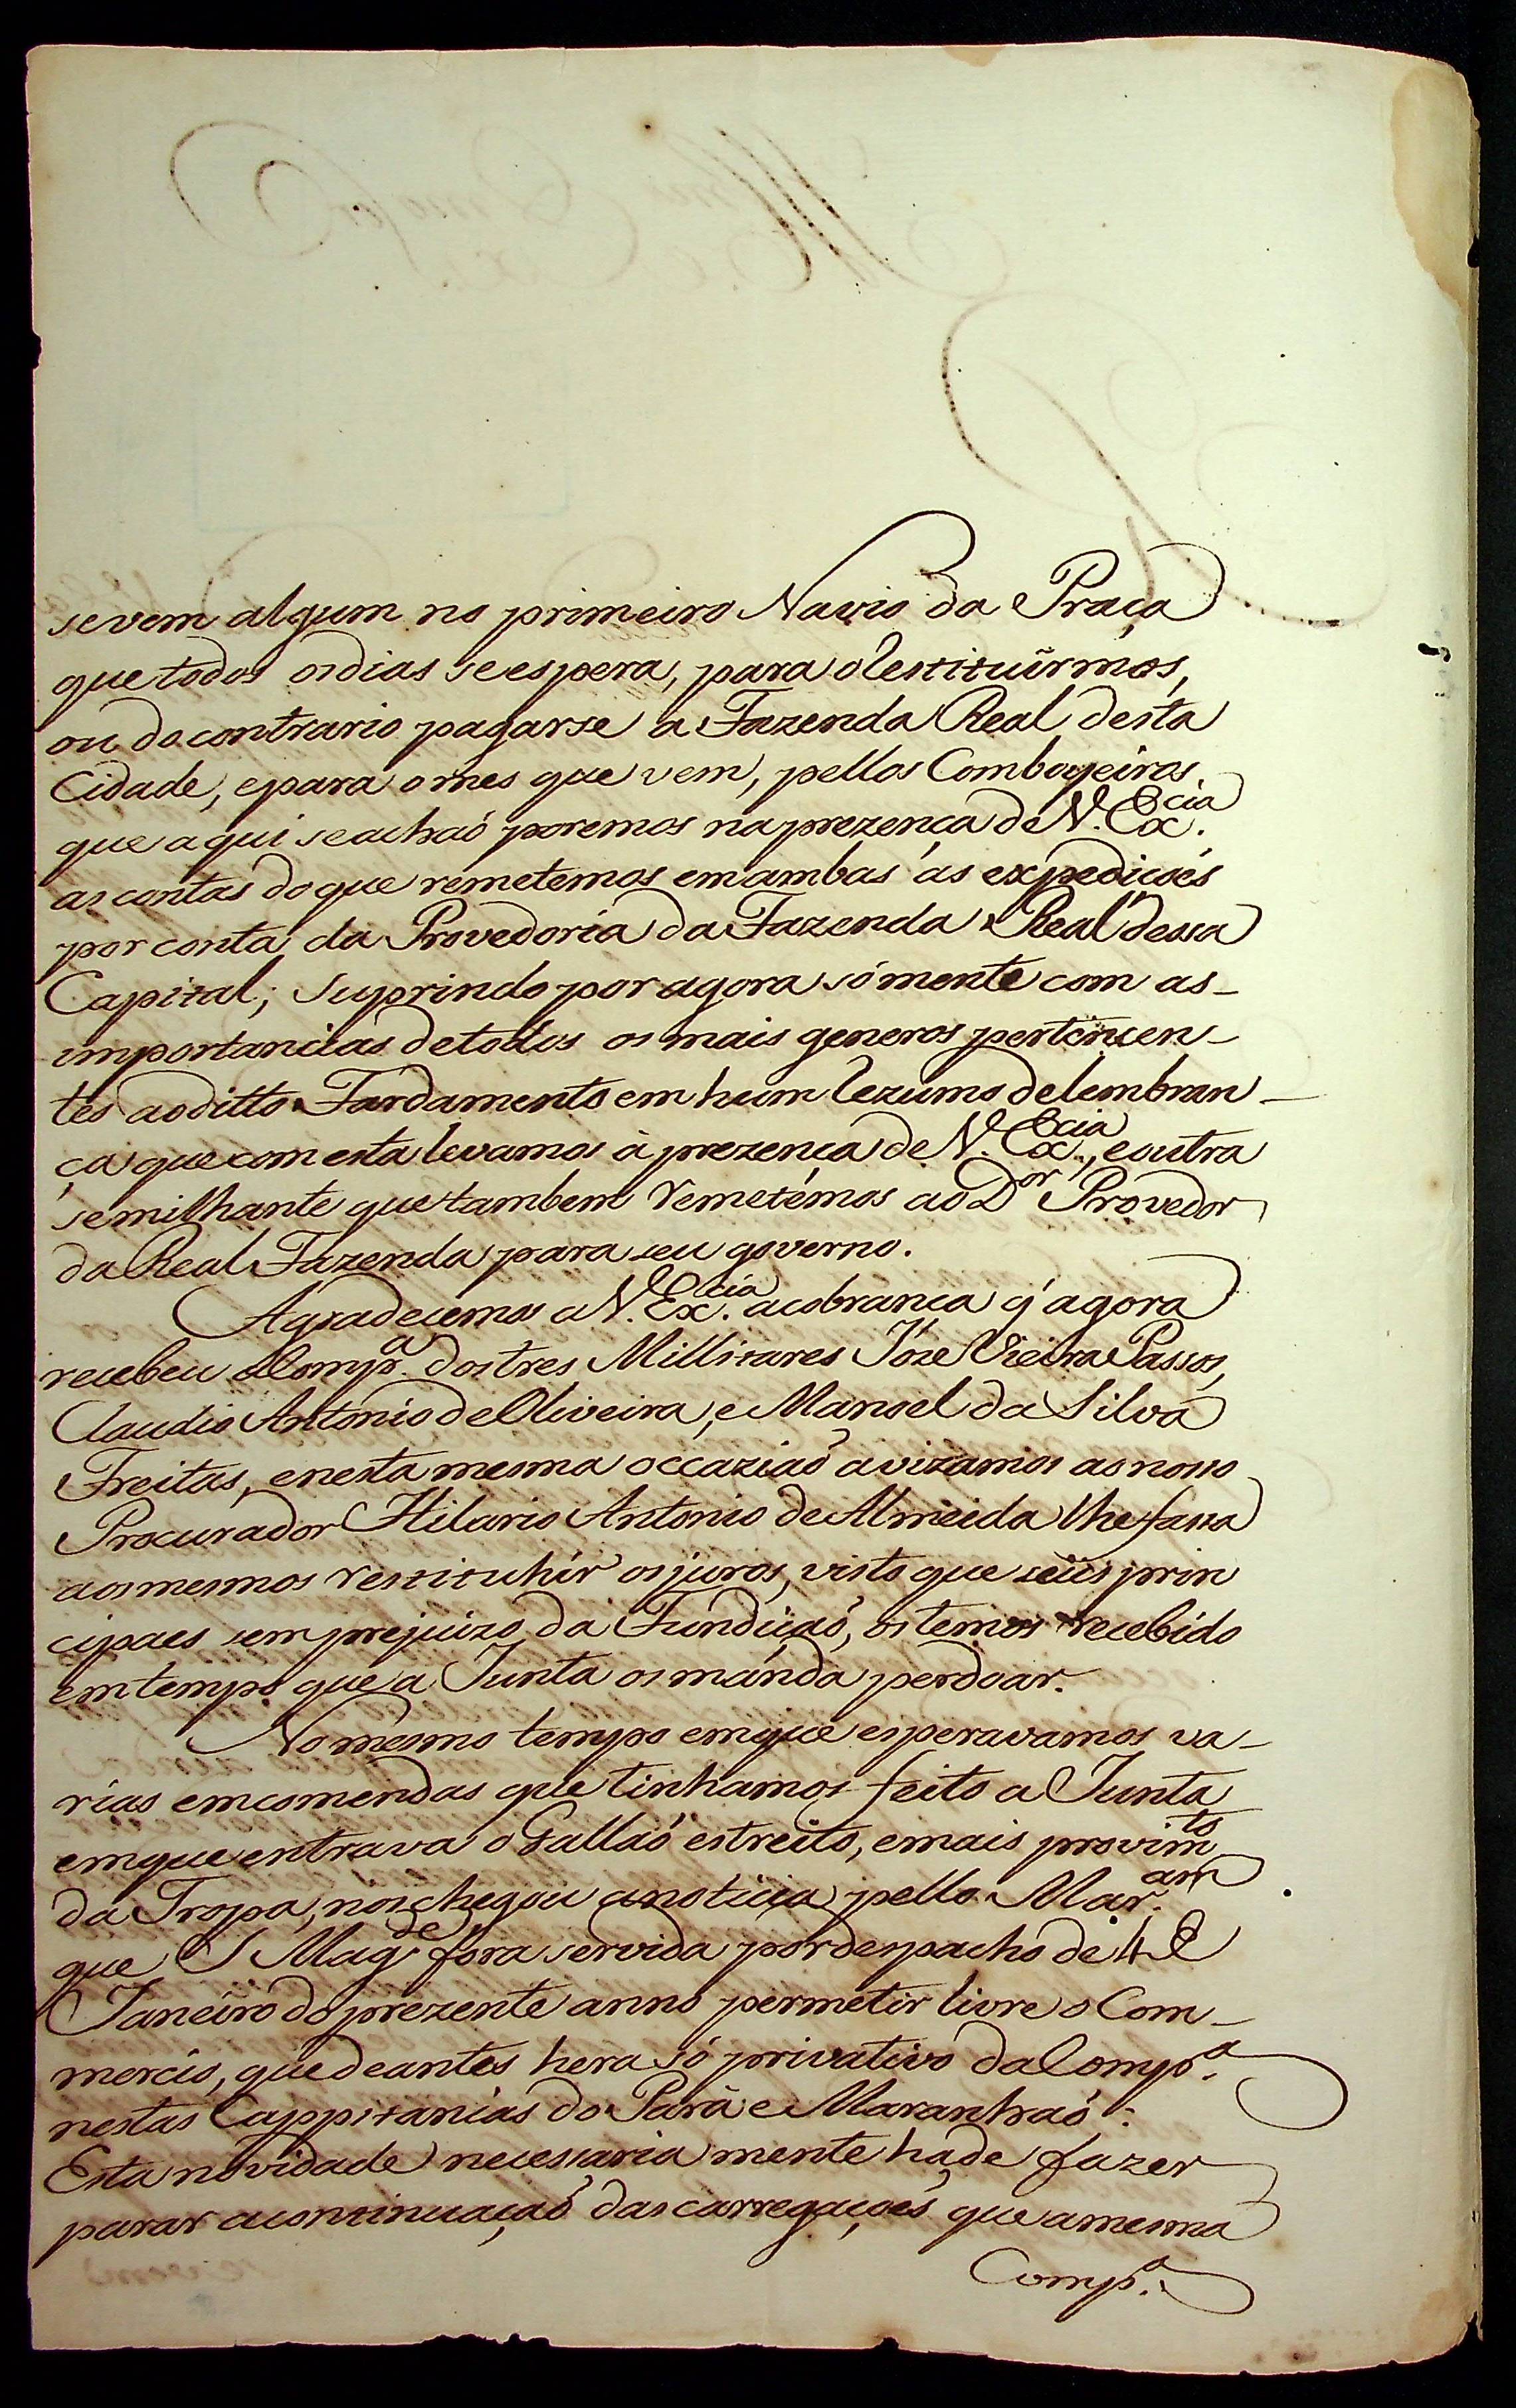 se vem algum no primeiro Navio da Praça
que todos os dias se espera, para o Restituîrmos,
ou do contrario pagarse a Fazenda Real desta
Cidade, e para o mes que vem, pellos Comboyeiros
que aqui se achaó poremos na prezença de V. Ex.cia
as contas do que remetemos em ambas as expediçoés
por conta da Provedoria da Fazenda Real dessa
Capital; suprindo por agora sómente com as-
importancias de todos os mais generos pertencen-
tes ao ditto Fardamento em hum Rezumo de lembran-
ça que com esta levamos á prezença de V. Ex.cia, e outra
semilhante que tambem Remetémos ao D.or Provedor
da Real Fazenda para seu governo.
Agradecemos a V. Ex.cia a cobrança q' agora
recebeu a Comp.a dos tres Millitares Józe Vieira Passos,
Claudio Antonio de Oliveira, e Manoel da Silva
Freitas, e nesta mesma occaziaó avizamos ao nosso
Procurador Hilario Antonio de Almeida lhe fassa
aos mesmos restituhir os juros, visto que seus prin
cipaes sem prejuizo da Fundiçaó, os temos recebido
em tempo que a Junta os manda perdoar.
No mesmo tempo em que esperavamos va-
rias emcomendas que tinhamos feito a Junta
em que entrava o Gallaó estreito, e mais provim.to
da Tropa, nos chegou a noticia pello Mar.am
que S Mag.de fora servida por despacho de 4 de
Janeiro do prezente anno permetir livre o Com-
mercio, que de antes hera só privativo da Comp.a
nestas Cappitanias do Pará e Maranhaó:
Esta novidade necessaria mente hade fazer
parar a continuaçaó das carregaçoés que a mesma
Comp.a